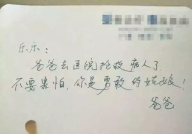 乐乐：
爸爸去医院抢救病人了
不要害怕，你是勇敢的娃娃！
爸爸